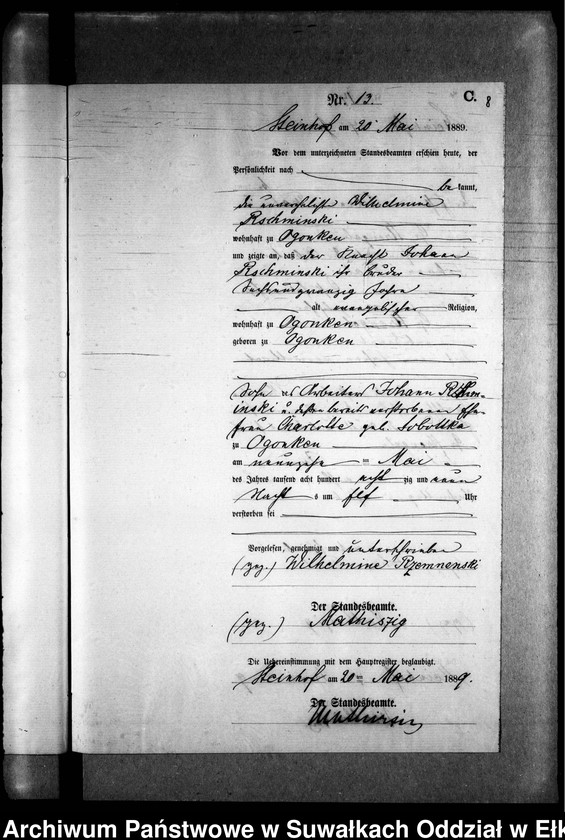 Nr. 13.
C. 8
Steinhof am 20 Mai 1889.
Vor dem unterzeichneten Standesbeamten erschien heute, der
Persönlichkeit nach
be kannt,
die unverehelichte Wilhelmine
Rschminski
wohnhaft zu Ogonken
und zeigte an, daß der Knecht Johann
Rschminski ihr bruder
Sechsundzwanzig Jahre
alt evangelischer Religion,
wohnhaft zu Ogonken
geboren zu Ogonken
Sohn des Arbeiters Johann
inski u. dessen bereits verstorbenen Ehe-
frau Charlotte geb. Sobottka
zu Ogonken
am neunzehn ten Mai
des Jahres tausend acht hundert acht zig und neun
Nacht s um elf Uhr
verstorben sei
Vorgelesen, genehmigt und unterschrieben
(gez.) Wilhelmine Rzemnenski
Der Standesbeamte.
(gez.) Mathiszig
Die Uebereinstimmung mit dem Hauptregister beglaubigt.
Steinhof am 20ten Mai 1889.
Der Standesbeamte.
Archiwum Państwowe w Suwałkach Oddział w Ełk